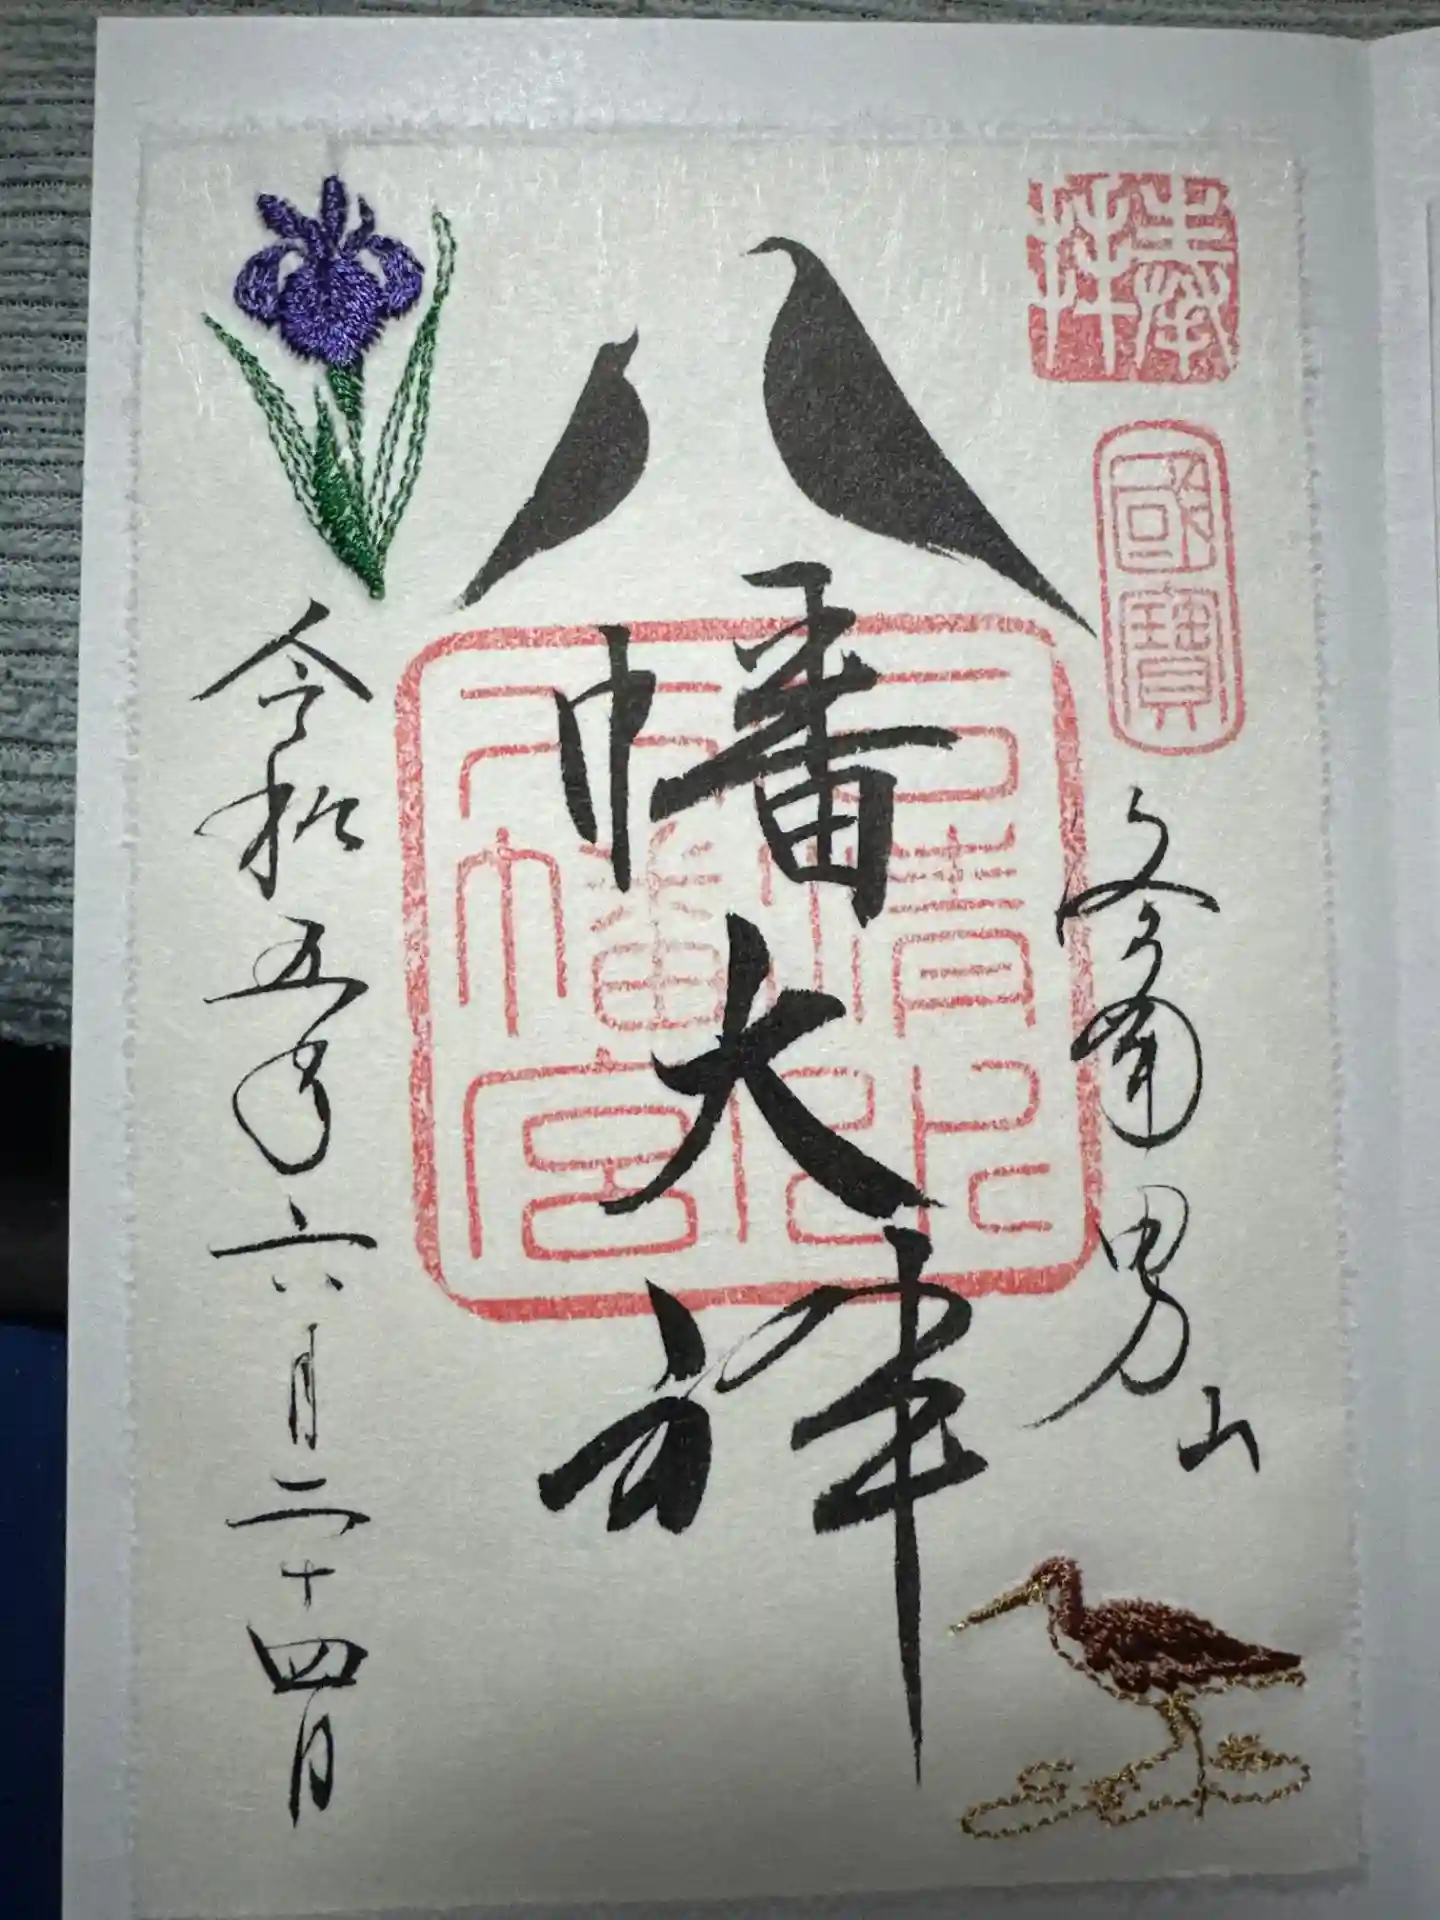 奉拝
國寶
洛南男山
八幡大神
石清水
八幡宮
令和五年六月二十四日